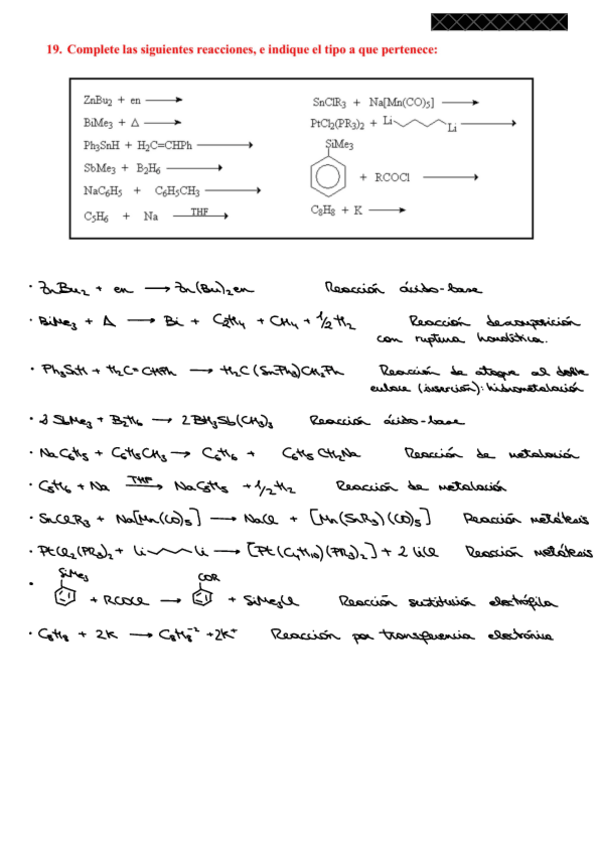 19. Complete las siguientes reacciones, e indique el tipo a que pertenece:
ZnBu₂ + en ⟶
BiMe₃ + Δ ⟶
Ph₃SnH + H₂C=CHPh ⟶
SbMe₃ + B₂H₆ ⟶
NaC₆H₅ + C₆H₅CH₃ ⟶
C₅H₆ + Na THF ⟶
SnClR₃ + Na[Mn(CO)₅] ⟶
PtCl₂(PR₃)₂ + Li Li ⟶
SiMe₃
+ RCOCl ⟶
C₈H₈ + K ⟶
· ZnBu₂ + en ⟶ Zn(Bu)₂en Reacción ácido-base
· BiMe₃ + Δ ⟶ Bi + C₂H₄ + CH₄ + 1/2 H₂ Reacción descomposición
con ruptura homolítica.
· Ph₃SnH + H₂C=CHPh ⟶ H₂C(SnPh₃)CH₂Ph Reacción de ataque al doble
enlace (inserción): hidrometalación
· 2 SbMe₃ + B₂H₆ ⟶ 2 BH₃Sb(CH₃)₃ Reacción ácido-base
· NaC₆H₅ + C₆H₅CH₃ ⟶ C₆H₆ + C₆H₅CH₂Na Reacción de metalación
· C₅H₆ + Na THF ⟶ NaC₅H₅ + 1/2 H₂ Reacción de metalación
· SnClR₃ + Na[Mn(CO)₅] ⟶ NaCl + [Mn(SnR₃)(CO)₅] Reacción metátesis
· PtCl₂(PR₃)₂ + Li Li ⟶ [Pt(C₄H₁₀)(PR₃)₂] + 2 LiCl Reacción metátesis
SiMe₃ COR
· + RCOCl ⟶ + SiMe₃Cl Reacción sustitución electrófila
· C₈H₈ + 2K ⟶ C₈H₈⁻² + 2K⁺ Reacción por transferencia electrónica